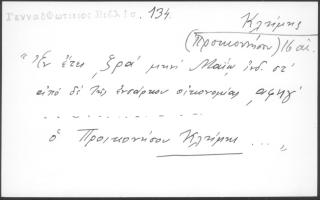 Γενναδ. 134.
Κλήμης
(Προικονήσου) 16 αι.
"Ἐν ἔτει ͵ζρα΄ μηνὶ Μαΐῳ ἰνδ. στ΄
ἀπὸ δὲ τῆς ἐνσάρκου οἰκονομίας ͵αφηγ΄
ὁ Προικονήσου Κλήμης ... "